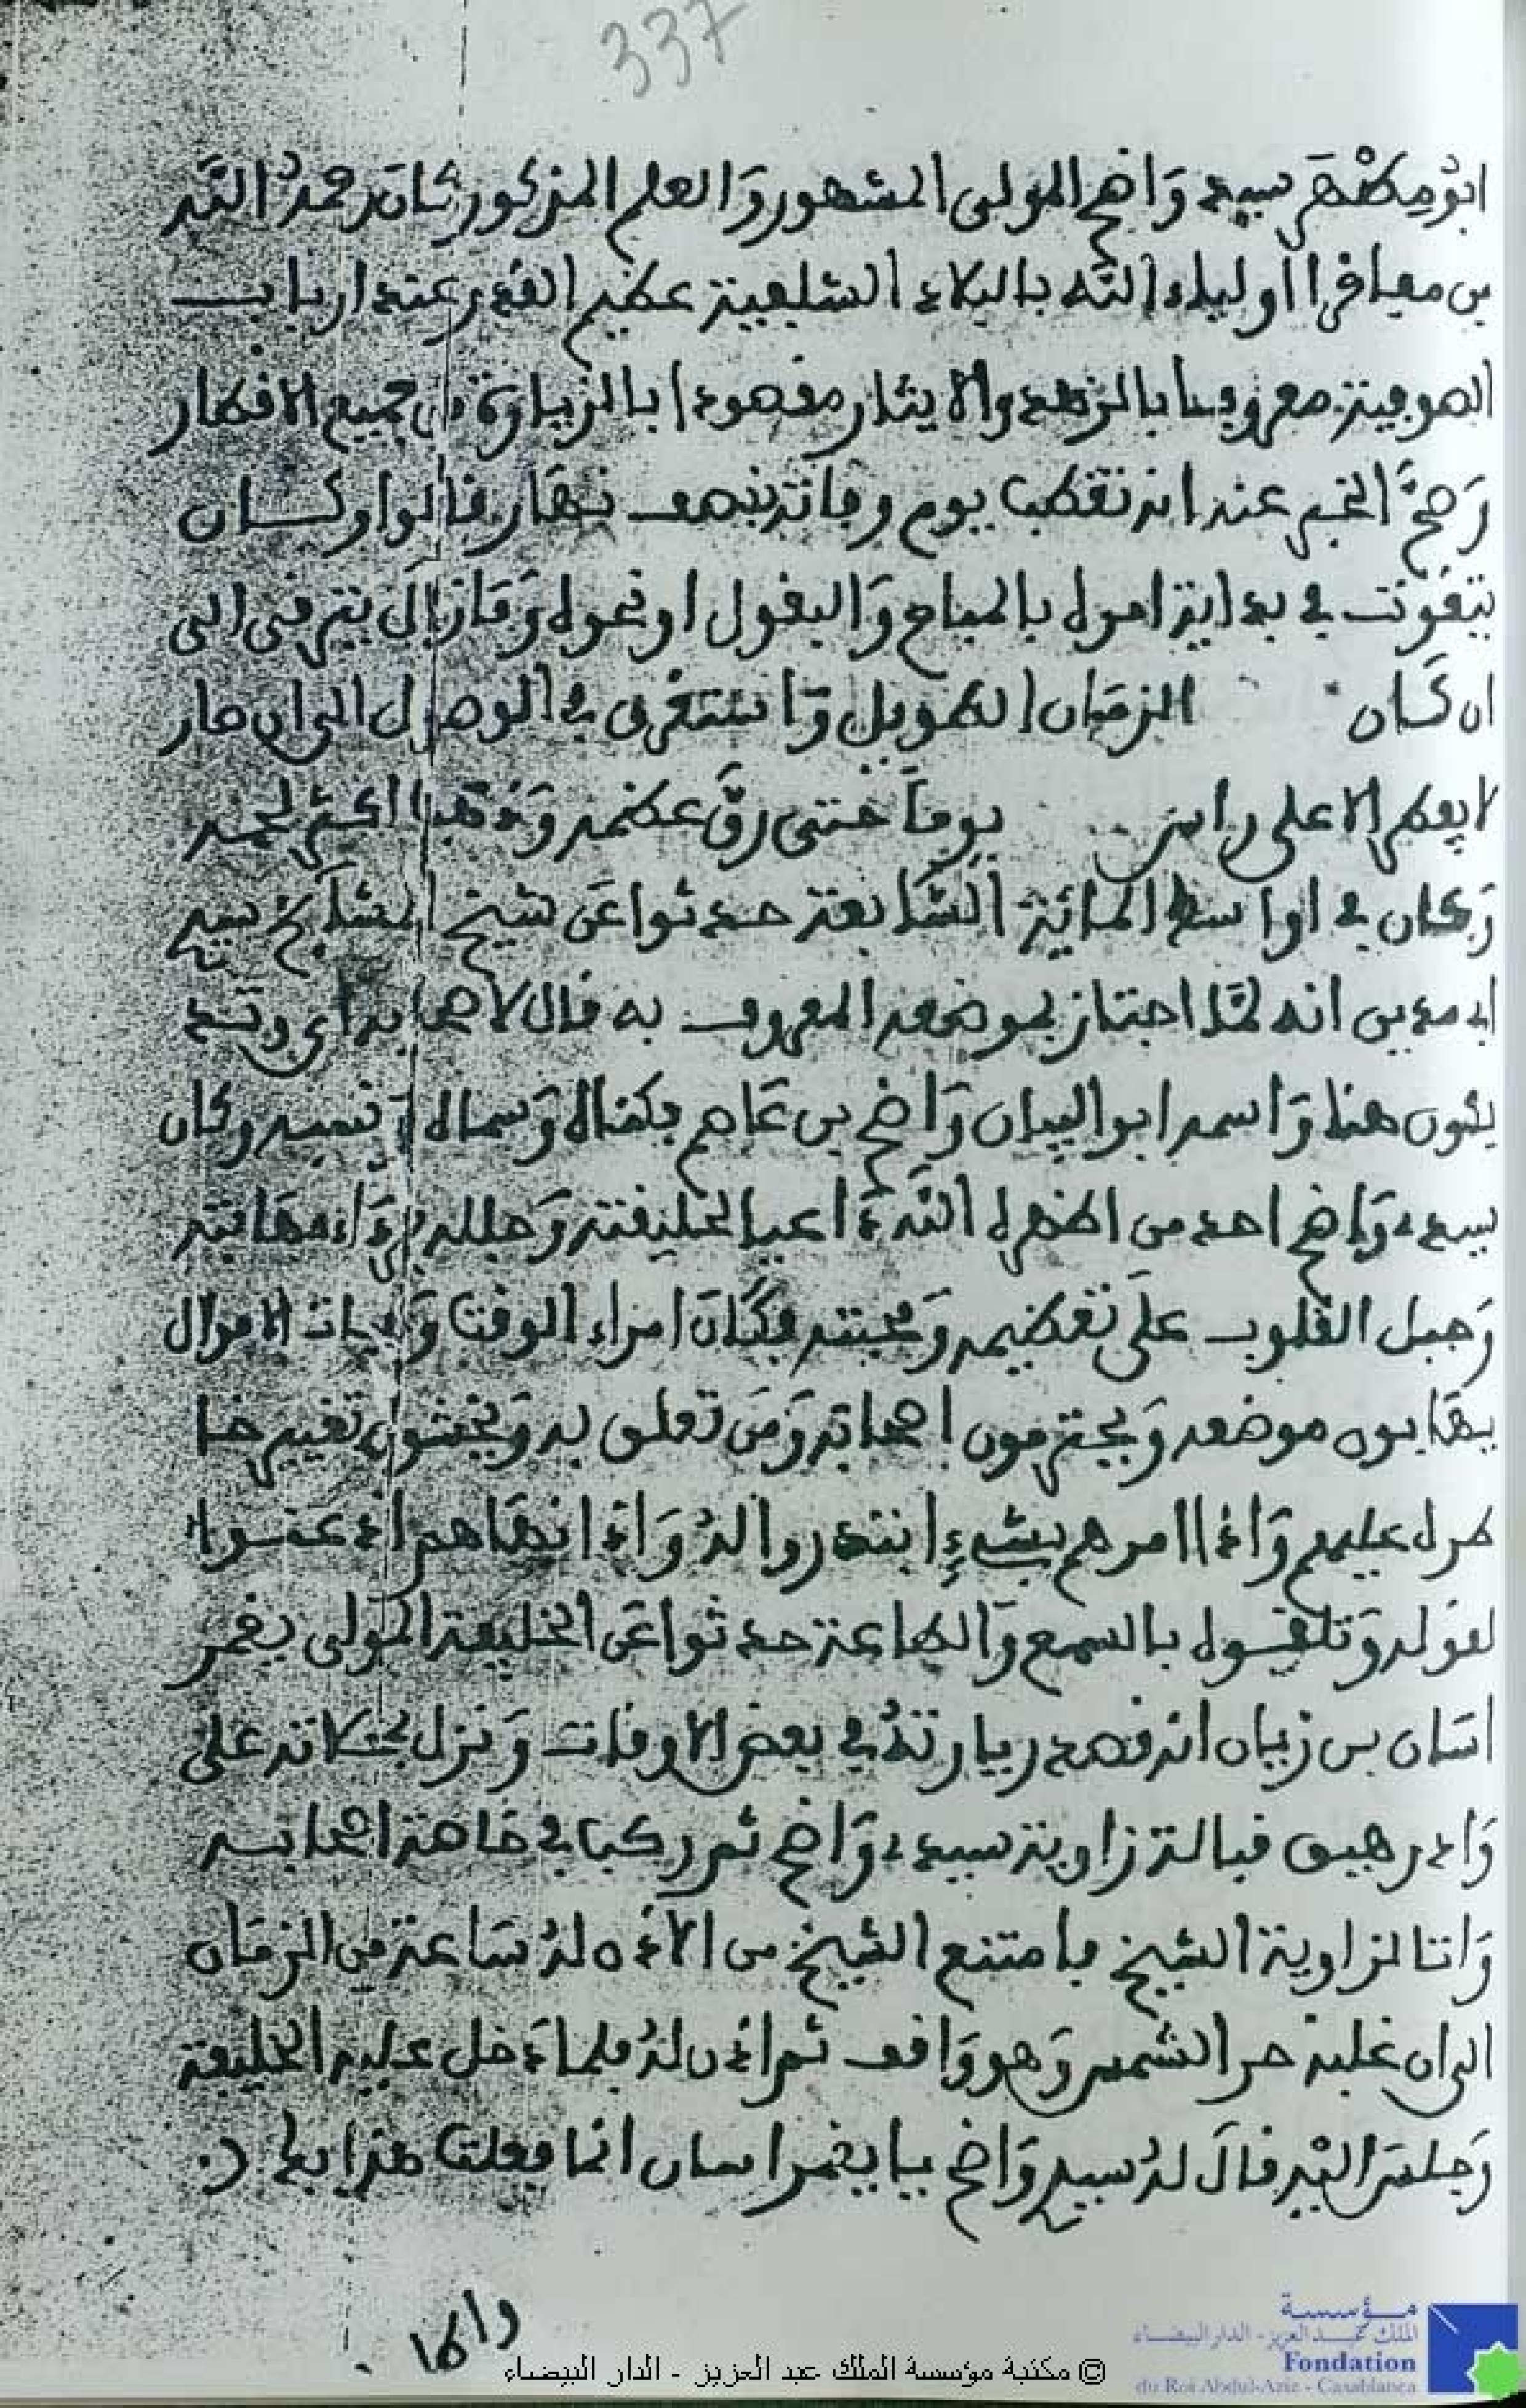 337
ابو مطهر سيد واضح المولى المشهور والعلم المذكور كان رحمه الله
من معافر اولياء الله بالبلاد الشلبية عظيم القدر عند ارباب
الصوفية معروفا بالزهد والايثار مقصودا بالزيارة من جميع الافطار
وصح الخبر عنه انه تقطب يوم وفاته بنصف نهار قالوا وكان
يتقوت في بداية اموله بالمباح والبقول او نحوه وما زال يترقى الى
ان كان الزمان الطويل واستغرق في الوصول الى ان صار
لا يفطر الا على راس يوما حتى رق عظمه وذهب اكثر لحمه
وكان في اواسط المائية السابعة حدثوا عن شيخ المشايخ سيد
ابي مدين انه لما اجتاز بموضعه المعروف به قال لاصحابه اي وتد
يكون هنا واسمه ابو البيان واضح بن عاصم بكناه وسماه ونسبه وكان
سيدي واضح احد من اظهره الله داعيا لخليفته وجلله برداء مهابته
وجبل القلوب على تعظيمه ومحبته فكان امراء الوقت وجبات الاموال
يهابون موضعه ويحترمون اصحابه ومن تعلق به ويخشون تغيير خا
طره عليهم واذا امرهم بشيء ابتدروا له واذا انهاهم اذعنوا
لقوله وتلقوه بالسمع والطاعة حدثوا عن الخليفة المولى يغمر
اسان بن زيان انه قصد زيارته في بعض الاوقات ونزل بمحلاته على
وادي رهيو قبالة زاوية سيدي واضح ثم ركب في خاصة اصحابه
واتا لزاوية الشيخ فامتنع الشيخ من الاذن له ساعة من الزمان
الى ان غلبه حر الشمس وهو واقف ثم اذن له فلما دخل عليه الخليفة
وجلس اليه قال له سيدي واضح يا يغمراسان انما فعلت هذا بك
© مكتبة مؤسسة الملك عبد العزيز - الدار البيضاء
مؤسسة
الملك عبد العزيز - الدار البيضاء
Fondation
du Roi Abdul-Aziz - Casablanca